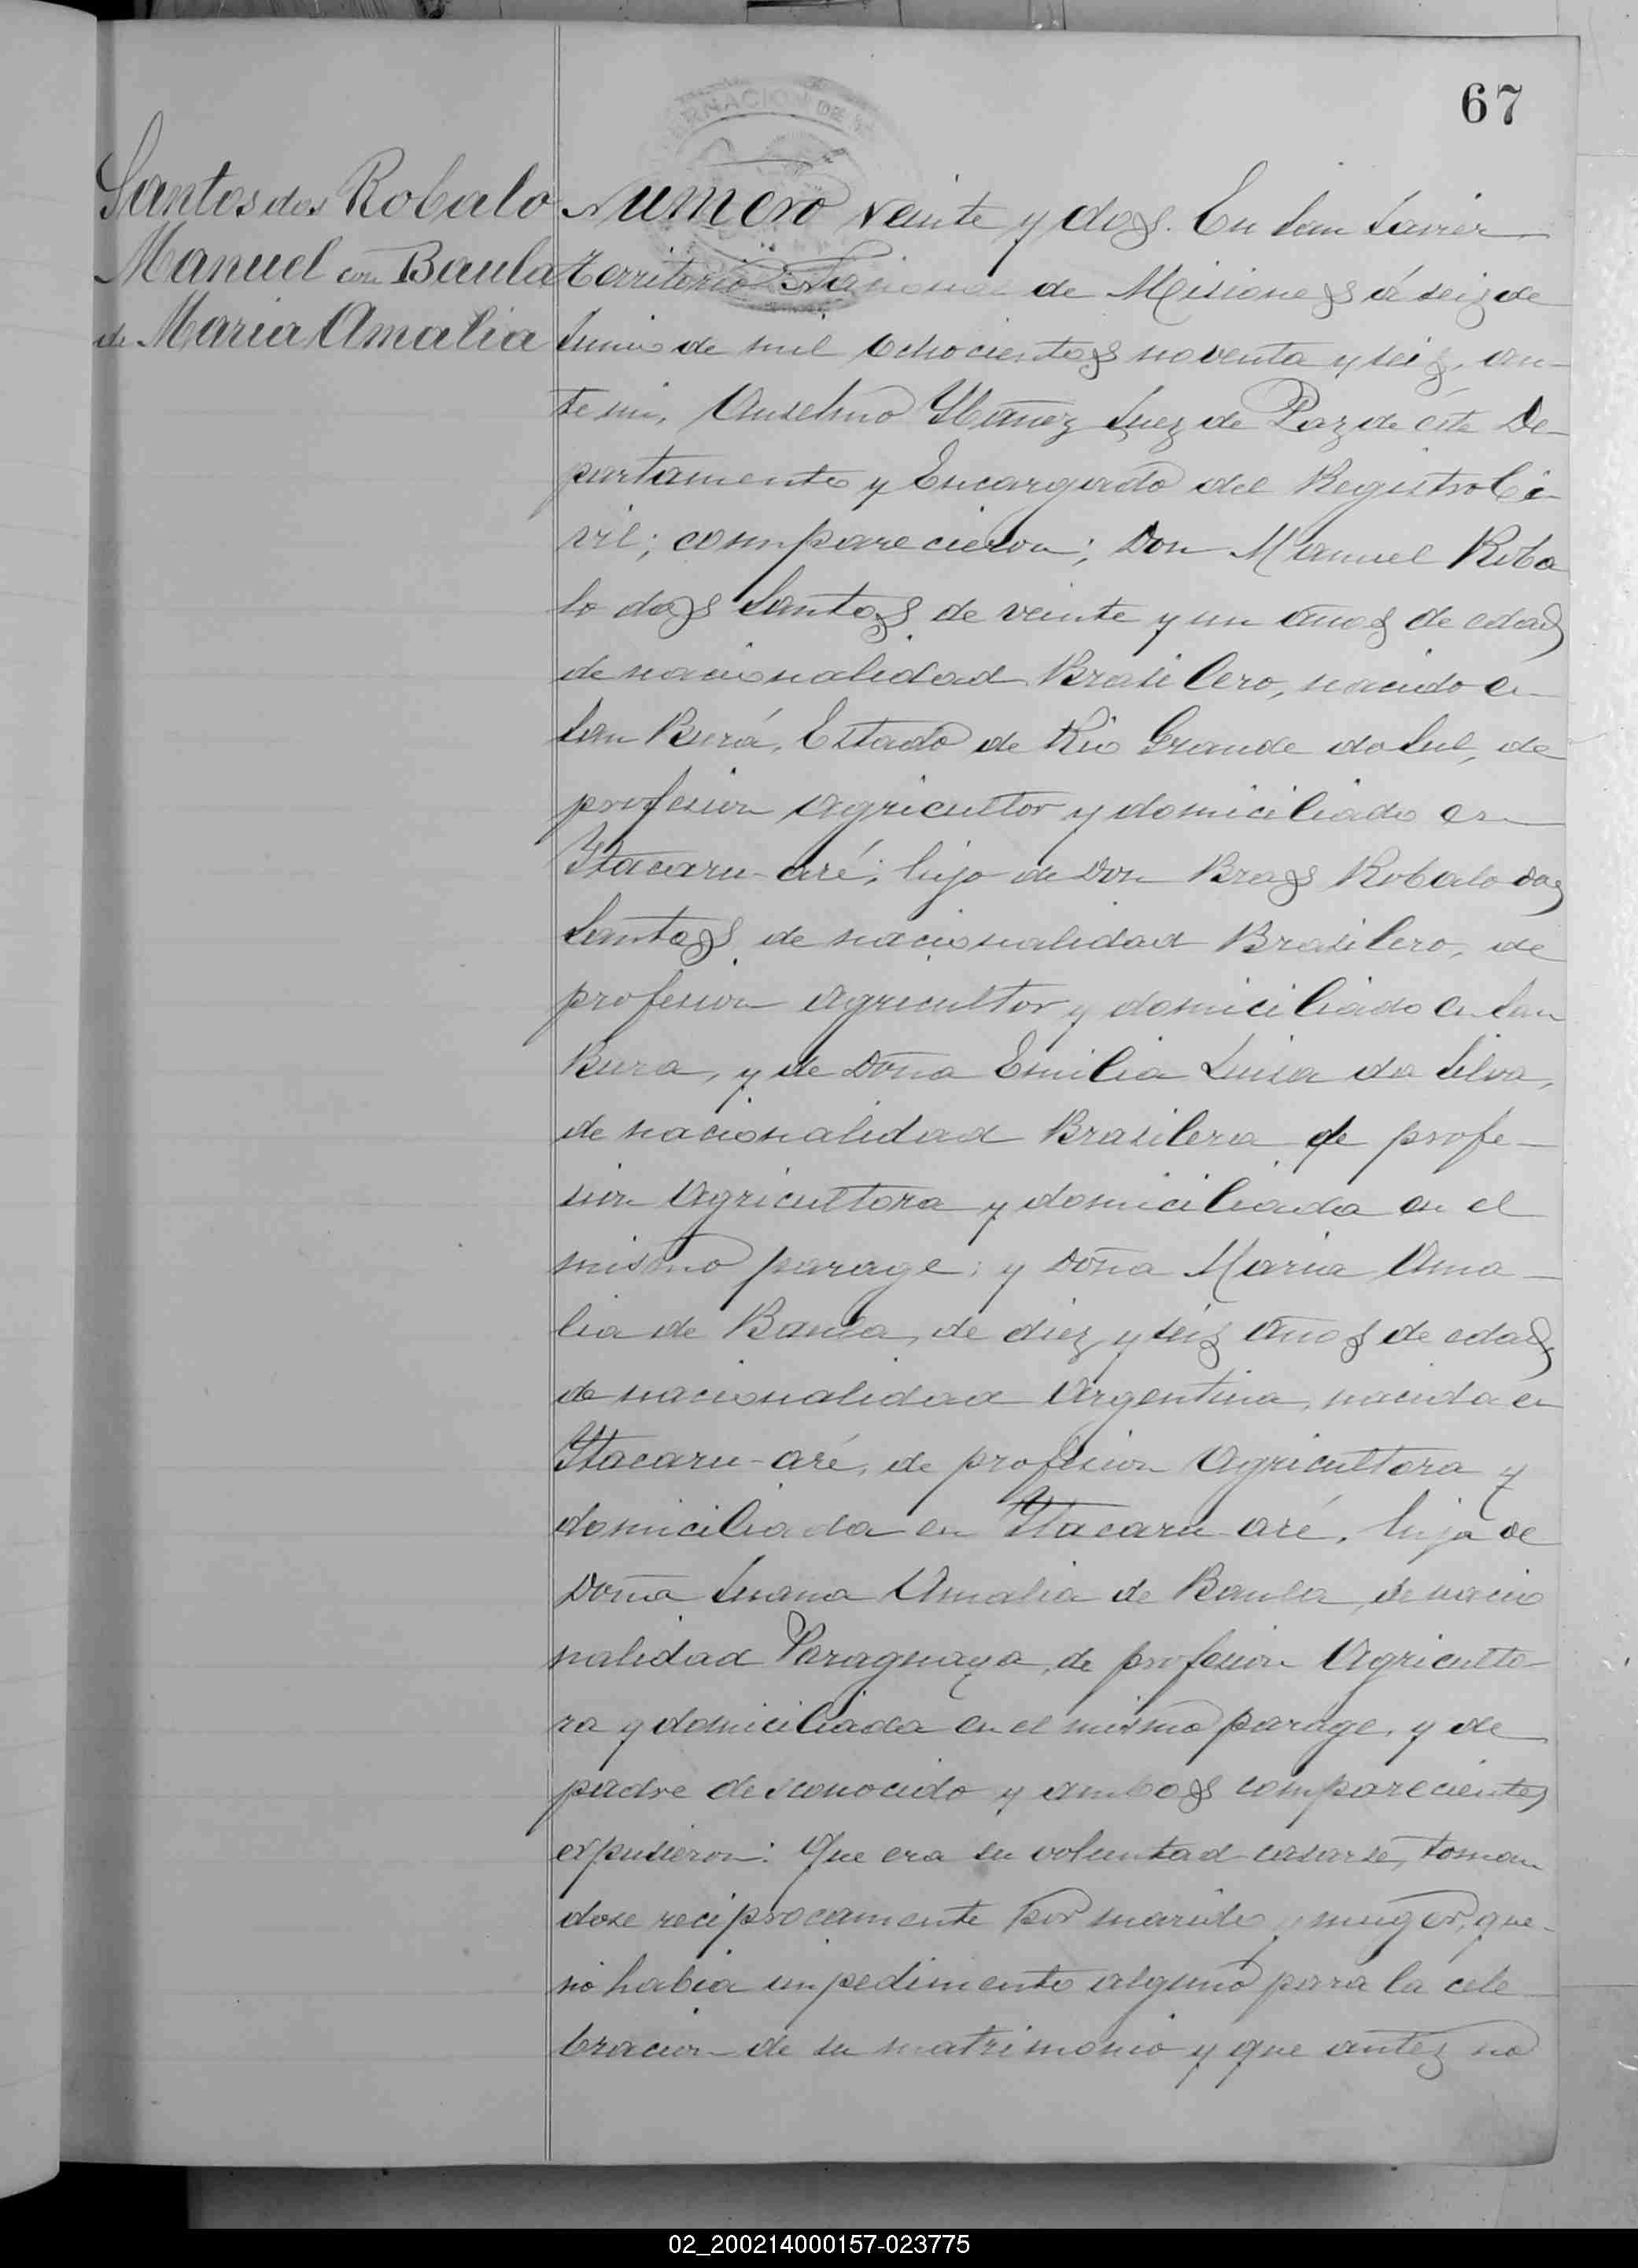 67
Santos dos Robalo
Manuel con Baula
de Maria Amalia
Numero veinte y dos. En San Javier
Territorio Nacional de Misiones á seis de
Junio de mil ochocientos noventa y seis, an-
te mi, Anselmo Ybañez Juez de Paz de éste De-
partamento y Encargado del Registro Ci-
vil; comparecieron; Don Manuel Roba
lo dos Santos de veinte y un años de edad
de nacionalidad Brasilero, nacido en
San Burá, Estado de Rio Grande do Sul, de
profesion Agricultor y domiciliado en
Ytacaru-aré; hijo de Don Bras Robalo dos
Santos de nacionalidad Brasilero, de
profesion Agricultor y domiciliado en San
Bura, y de Doña Emilia Luisa da Silva,
de nacionalidad Brasilera de profe-
sion Agricultora y domiciliada en el
mismo parage; y Doña Maria Ama-
lia de Baula, de diez y seis años de edad,
de nacionalidad Argentina, nacida en
Ytacaru-aré, de profesion Agricultora y
domiciliada en Ytacaru-aré, hija de
Doña Juana Amalia de Baula, de nacio
nalidad Paraguaya, de profesion Agriculto-
ra y domiciliada en el mismo parage, y de
padre desconocido y ambos comparecientes
expusieron: Que era su voluntad casarse, toman
dose reciprocamente por marido y muger, que-
no habia impedimento alguno para la cele-
bracion de su matrimonio y que antes no
02_200214000157-023775